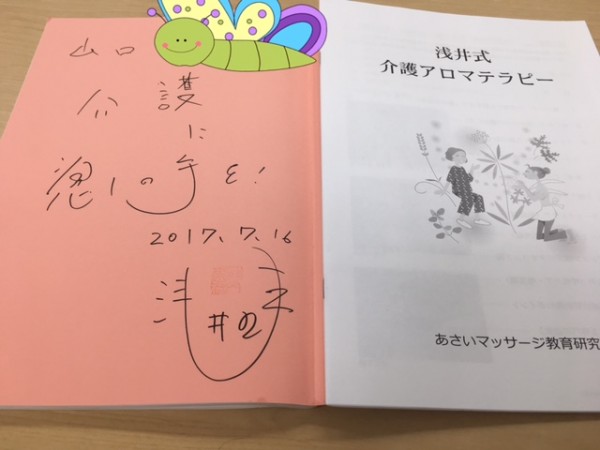 山口
介護
に
癒しの手を!
2017.7.16
浅井
浅井式
介護アロマテラピー
あさいマッサージ教育研究